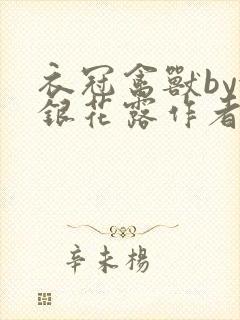 衣冠禽獸by
銀花露作者
辛未楊